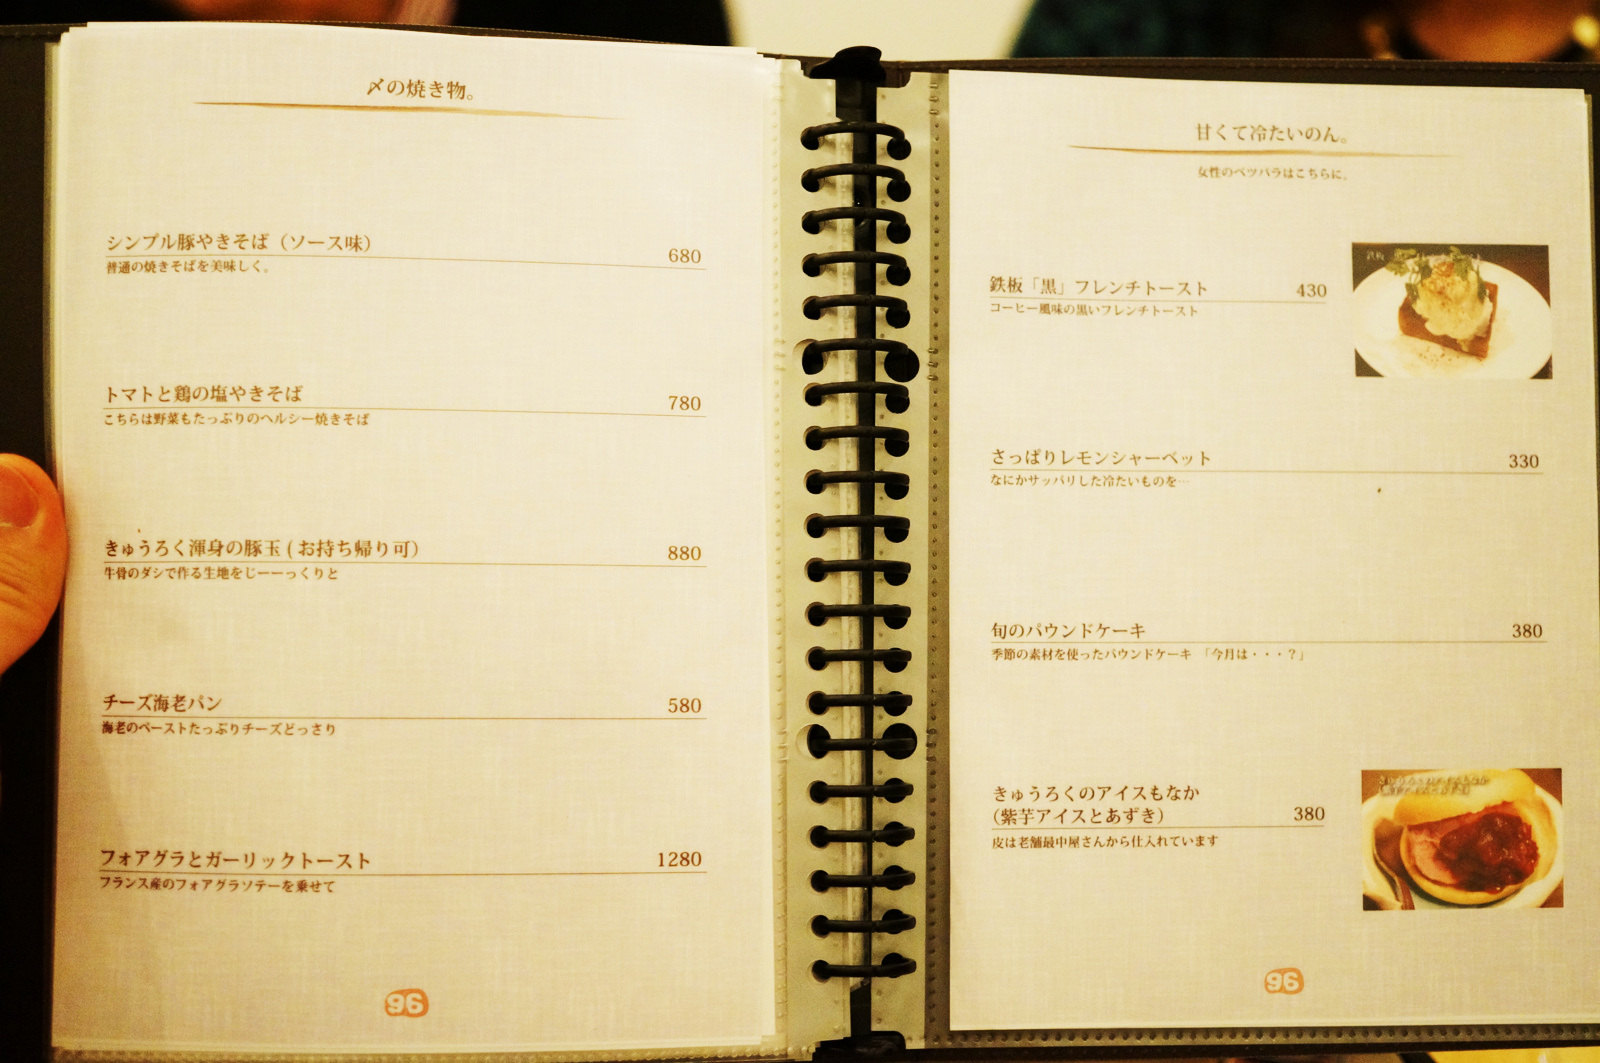 〆の焼き物。
シンプル豚やきそば（ソース味） 680
普通の焼きそばを美味しく。
トマトと鶏の塩やきそば 780
こちらは野菜もたっぷりのヘルシー焼きそば
きゅうろく渾身の豚玉(お持ち帰り可) 880
牛骨のダシで作る生地をじーーっくりと
チーズ海老パン 580
海老のペーストたっぷりチーズどっさり
フォアグラとガーリックトースト 1280
フランス産のフォアグラソテーを乗せて
96
甘くて冷たいのん。
女性のベツバラはこちらに。
鉄板「黒」フレンチトースト 430
コーヒー風味の黒いフレンチトースト
鉄板
さっぱりレモンシャーベット 330
なにかサッパリした冷たいものを…
旬のパウンドケーキ 380
季節の素材を使ったパウンドケーキ 「今月は・・・？」
きゅうろくのアイスもなか
（紫芋アイスとあずき） 380
皮は老舗最中屋さんから仕入れています
96